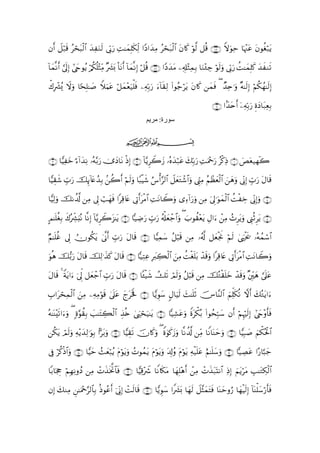 يَبْغُونَ عَنْهَا حِوَلًا ۝ قُل لَّوْ كَانَ ٱلْبَحْرُ مِدَادًا لِّكَلِمَٰتِ رَبِّى لَنَفِدَ ٱلْبَحْرُ قَبْلَ أَن
تَنفَدَ كَلِمَٰتُ رَبِّى وَلَوْ جِئْنَا بِمِثْلِهِۦ مَدَدًا ۝ قُلْ إِنَّمَآ أَنَا۠ بَشَرٌ مِّثْلُكُمْ يُوحَىٰٓ إِلَىَّ أَنَّمَآ
إِلَٰهُكُمْ إِلَٰهٌ وَٰحِدٌ ۖ فَمَن كَانَ يَرْجُوا۟ لِقَآءَ رَبِّهِۦ فَلْيَعْمَلْ عَمَلًا صَٰلِحًا وَلَا يُشْرِكْ
بِعِبَادَةِ رَبِّهِۦٓ أَحَدًۢا ۝
سورة: مريم
بِسْمِ ٱللَّهِ ٱلرَّحْمَٰنِ ٱلرَّحِيمِ
كٓهيعٓصٓ ۝ ذِكْرُ رَحْمَتِ رَبِّكَ عَبْدَهُۥ زَكَرِيَّآ ۝ إِذْ نَادَىٰ رَبَّهُۥ نِدَآءً خَفِيًّا ۝
قَالَ رَبِّ إِنِّى وَهَنَ ٱلْعَظْمُ مِنِّى وَٱشْتَعَلَ ٱلرَّأْسُ شَيْبًا وَلَمْ أَكُنۢ بِدُعَآئِكَ رَبِّ شَقِيًّا
۝ وَإِنِّى خِفْتُ ٱلْمَوَٰلِىَ مِن وَرَآءِى وَكَانَتِ ٱمْرَأَتِى عَاقِرًا فَهَبْ لِى مِن لَّدُنكَ وَلِيًّا
۝ يَرِثُنِى وَيَرِثُ مِنْ ءَالِ يَعْقُوبَ ۖ وَٱجْعَلْهُ رَبِّ رَضِيًّا ۝ يَٰزَكَرِيَّآ إِنَّا نُبَشِّرُكَ بِغُلَٰمٍ
ٱسْمُهُۥ يَحْيَىٰ لَمْ نَجْعَل لَّهُۥ مِن قَبْلُ سَمِيًّا ۝ قَالَ رَبِّ أَنَّىٰ يَكُونُ لِى غُلَٰمٌ
وَكَانَتِ ٱمْرَأَتِى عَاقِرًا وَقَدْ بَلَغْتُ مِنَ ٱلْكِبَرِ عِتِيًّا ۝ قَالَ كَذَٰلِكَ قَالَ رَبُّكَ هُوَ
عَلَىَّ هَيِّنٌ وَقَدْ خَلَقْتُكَ مِن قَبْلُ وَلَمْ تَكُ شَيْـًٔا ۝ قَالَ رَبِّ ٱجْعَل لِّىٓ ءَايَةً ۚ قَالَ
ءَايَتُكَ أَلَّا تُكَلِّمَ ٱلنَّاسَ ثَلَٰثَ لَيَالٍ سَوِيًّا ۝ فَخَرَجَ عَلَىٰ قَوْمِهِۦ مِنَ ٱلْمِحْرَابِ
فَأَوْحَىٰٓ إِلَيْهِمْ أَن سَبِّحُوا۟ بُكْرَةً وَعَشِيًّا ۝ يَٰيَحْيَىٰ خُذِ ٱلْكِتَٰبَ بِقُوَّةٍ ۖ وَءَاتَيْنَٰهُ
ٱلْحُكْمَ صَبِيًّا ۝ وَحَنَانًا مِّن لَّدُنَّا وَزَكَوٰةً ۖ وَكَانَ تَقِيًّا ۝ وَبَرًّۢا بِوَٰلِدَيْهِ وَلَمْ يَكُن
جَبَّارًا عَصِيًّا ۝ وَسَلَٰمٌ عَلَيْهِ يَوْمَ وُلِدَ وَيَوْمَ يَمُوتُ وَيَوْمَ يُبْعَثُ حَيًّا ۝ وَٱذْكُرْ فِى
ٱلْكِتَٰبِ مَرْيَمَ إِذِ ٱنتَبَذَتْ مِنْ أَهْلِهَا مَكَانًا شَرْقِيًّا ۝ فَٱتَّخَذَتْ مِن دُونِهِمْ حِجَابًا
فَأَرْسَلْنَآ إِلَيْهَا رُوحَنَا فَتَمَثَّلَ لَهَا بَشَرًا سَوِيًّا ۝ قَالَتْ إِنِّىٓ أَعُوذُ بِٱلرَّحْمَٰنِ مِنكَ إِن